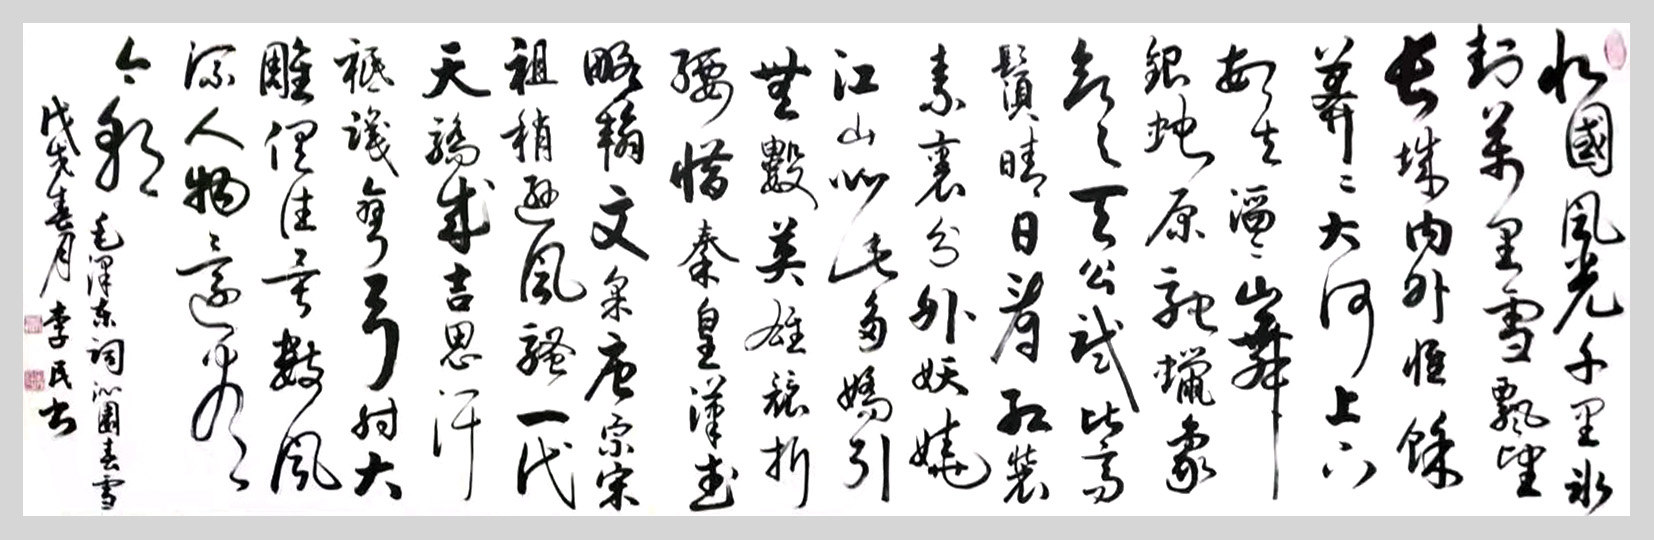 北國風光千里冰
封萬里雪飄望
長城內外惟餘
莽〻大河上下
頓失滔〻山舞
銀蛇原馳蠟象
欲與天公試比高
鬚晴日看紅裝
素裹分外妖嬈
江山如此多嬌引
無數英雄競折
腰惜秦皇漢武
略輸文采唐宗宋
祖稍遜風騷一代
天驕成吉思汗
祇識彎弓射大
雕俱往矣數風
流人物還看
今朝
毛澤東詞沁園春雪
戊戌春月李民書